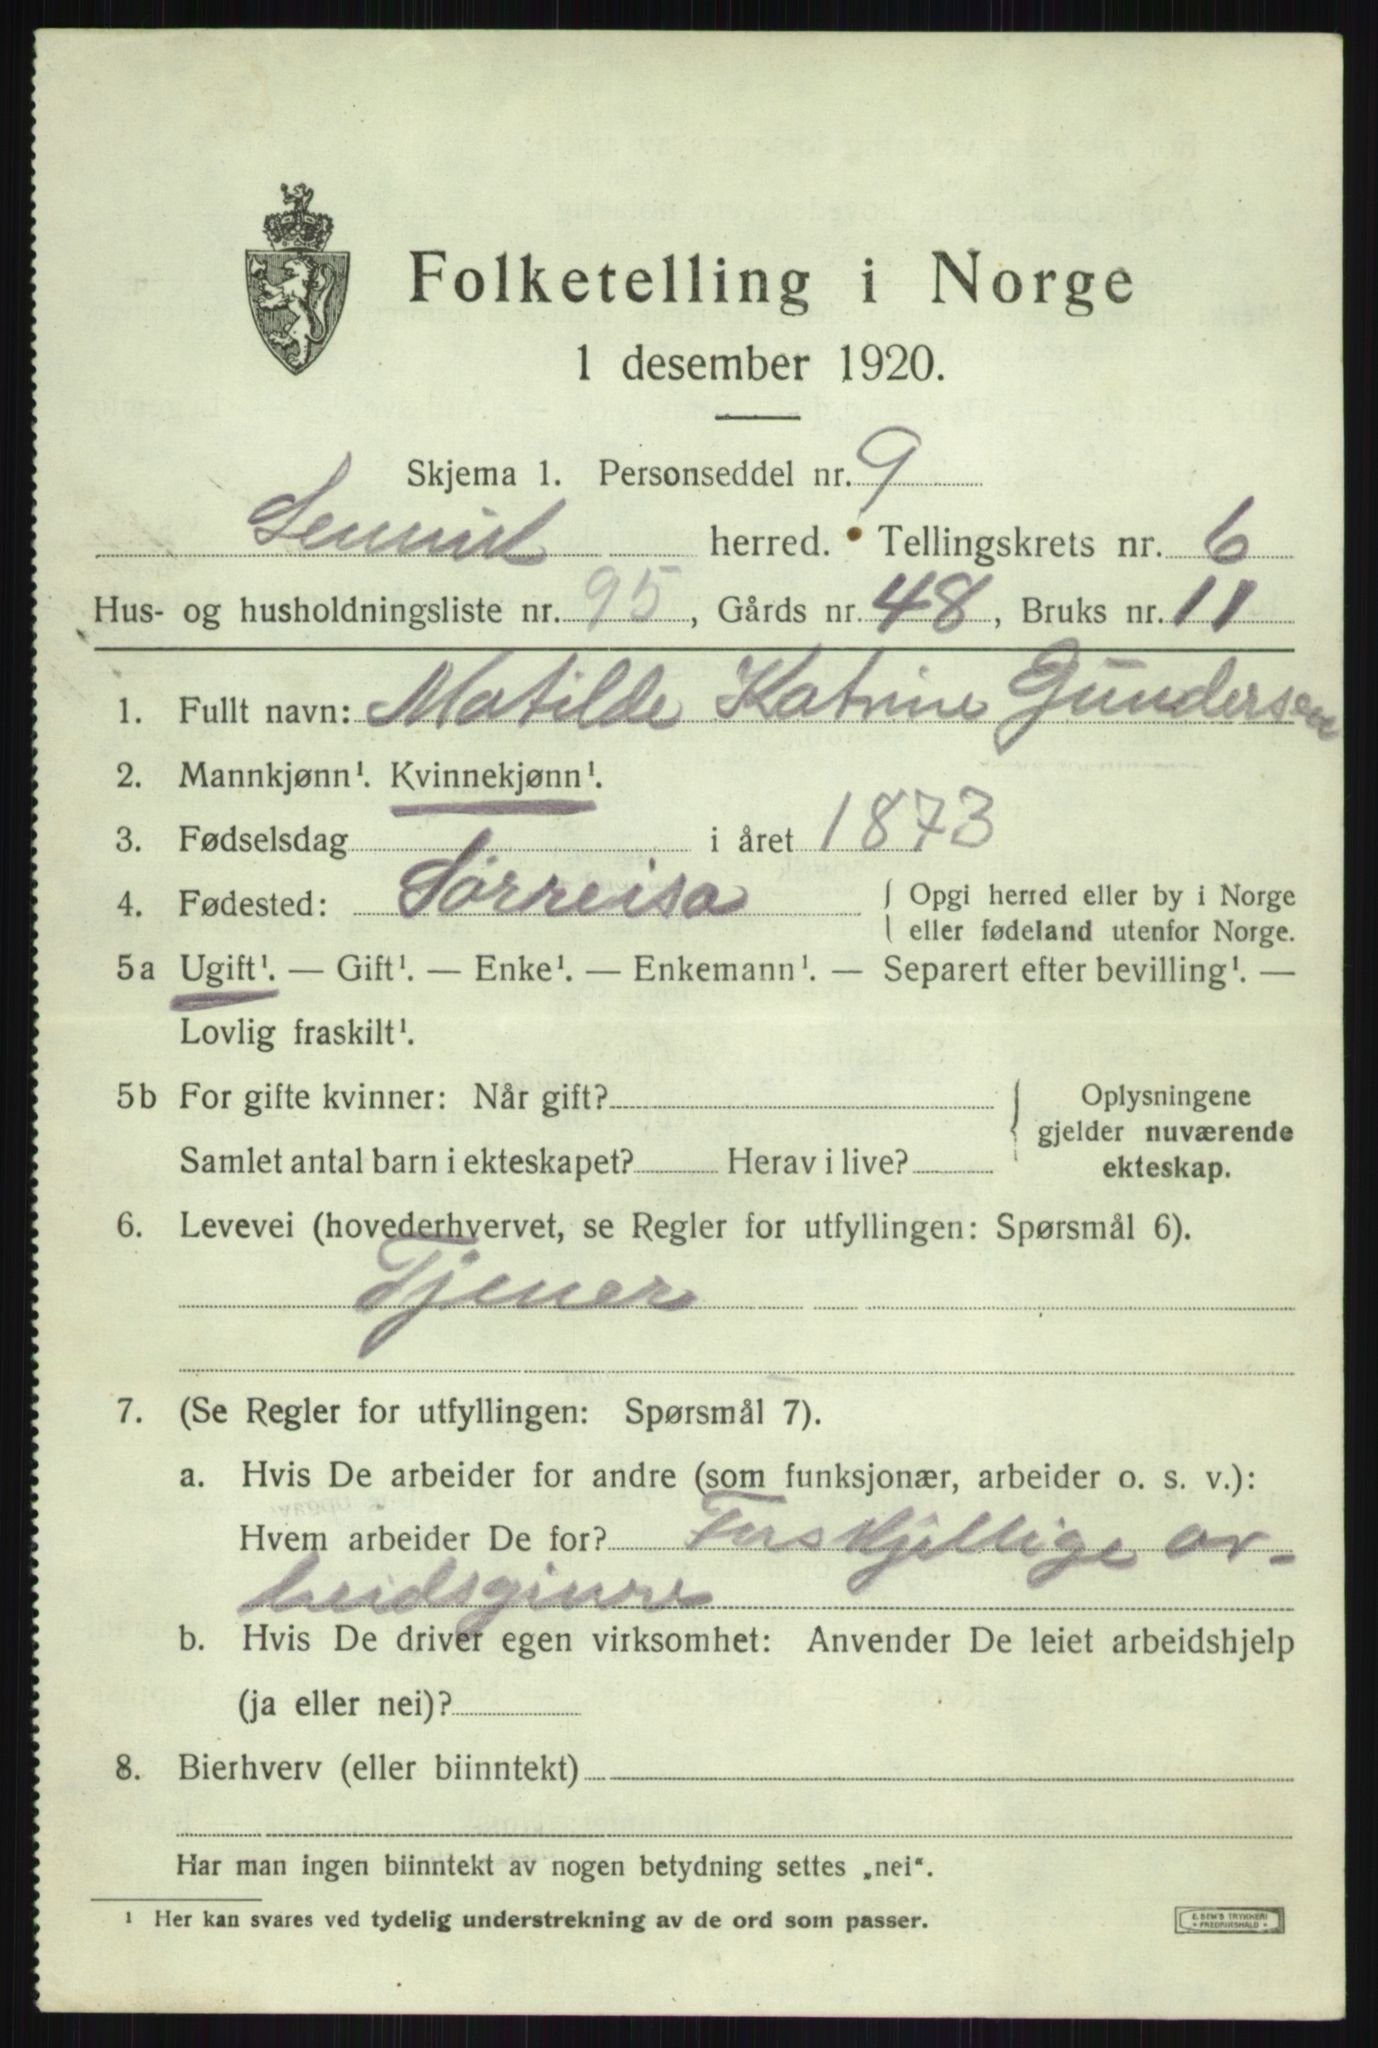 Folketelling i Norge
1 desember 1920.
Skjema 1. Personseddel nr. 9
Lenvik herred. Tellingskrets nr. 6
Hus- og husholdningsliste nr. 95, Gårds nr. 48, Bruks nr. 11
1. Fullt navn: Matilde Katrine Gundersen
2. Mannkjønn¹. Kvinnekjønn¹.
3. Fødselsdag i året 1873
4. Fødested: Sørreisa { Opgi herred eller by i Norge
eller fødeland utenfor Norge.
5a Ugift¹. — Gift¹. — Enke¹. — Enkemann¹. — Separert efter bevilling¹. —
Lovlig fraskilt¹.
5b For gifte kvinner: Når gift? { Oplysningene
gjelder nuværende
Samlet antal barn i ekteskapet? Herav i live? ekteskap.
6. Levevei (hovederhvervet, se Regler for utfyllingen: Spørsmål 6).
Tjener
7. (Se Regler for utfyllingen: Spørsmål 7).
a. Hvis De arbeider for andre (som funksjonær, arbeider o. s. v.):
Hvem arbeider De for? Forskjellige ar-
beidsgivere
b. Hvis De driver egen virksomhet: Anvender De leiet arbeidshjelp
(ja eller nei)?
8. Bierhverv (eller biinntekt)
Har man ingen biinntekt av nogen betydning settes „nei“.
¹ Her kan svares ved tydelig understrekning av de ord som passer.
E. SEM'S TRYKKERI
FREDRIKSHALD